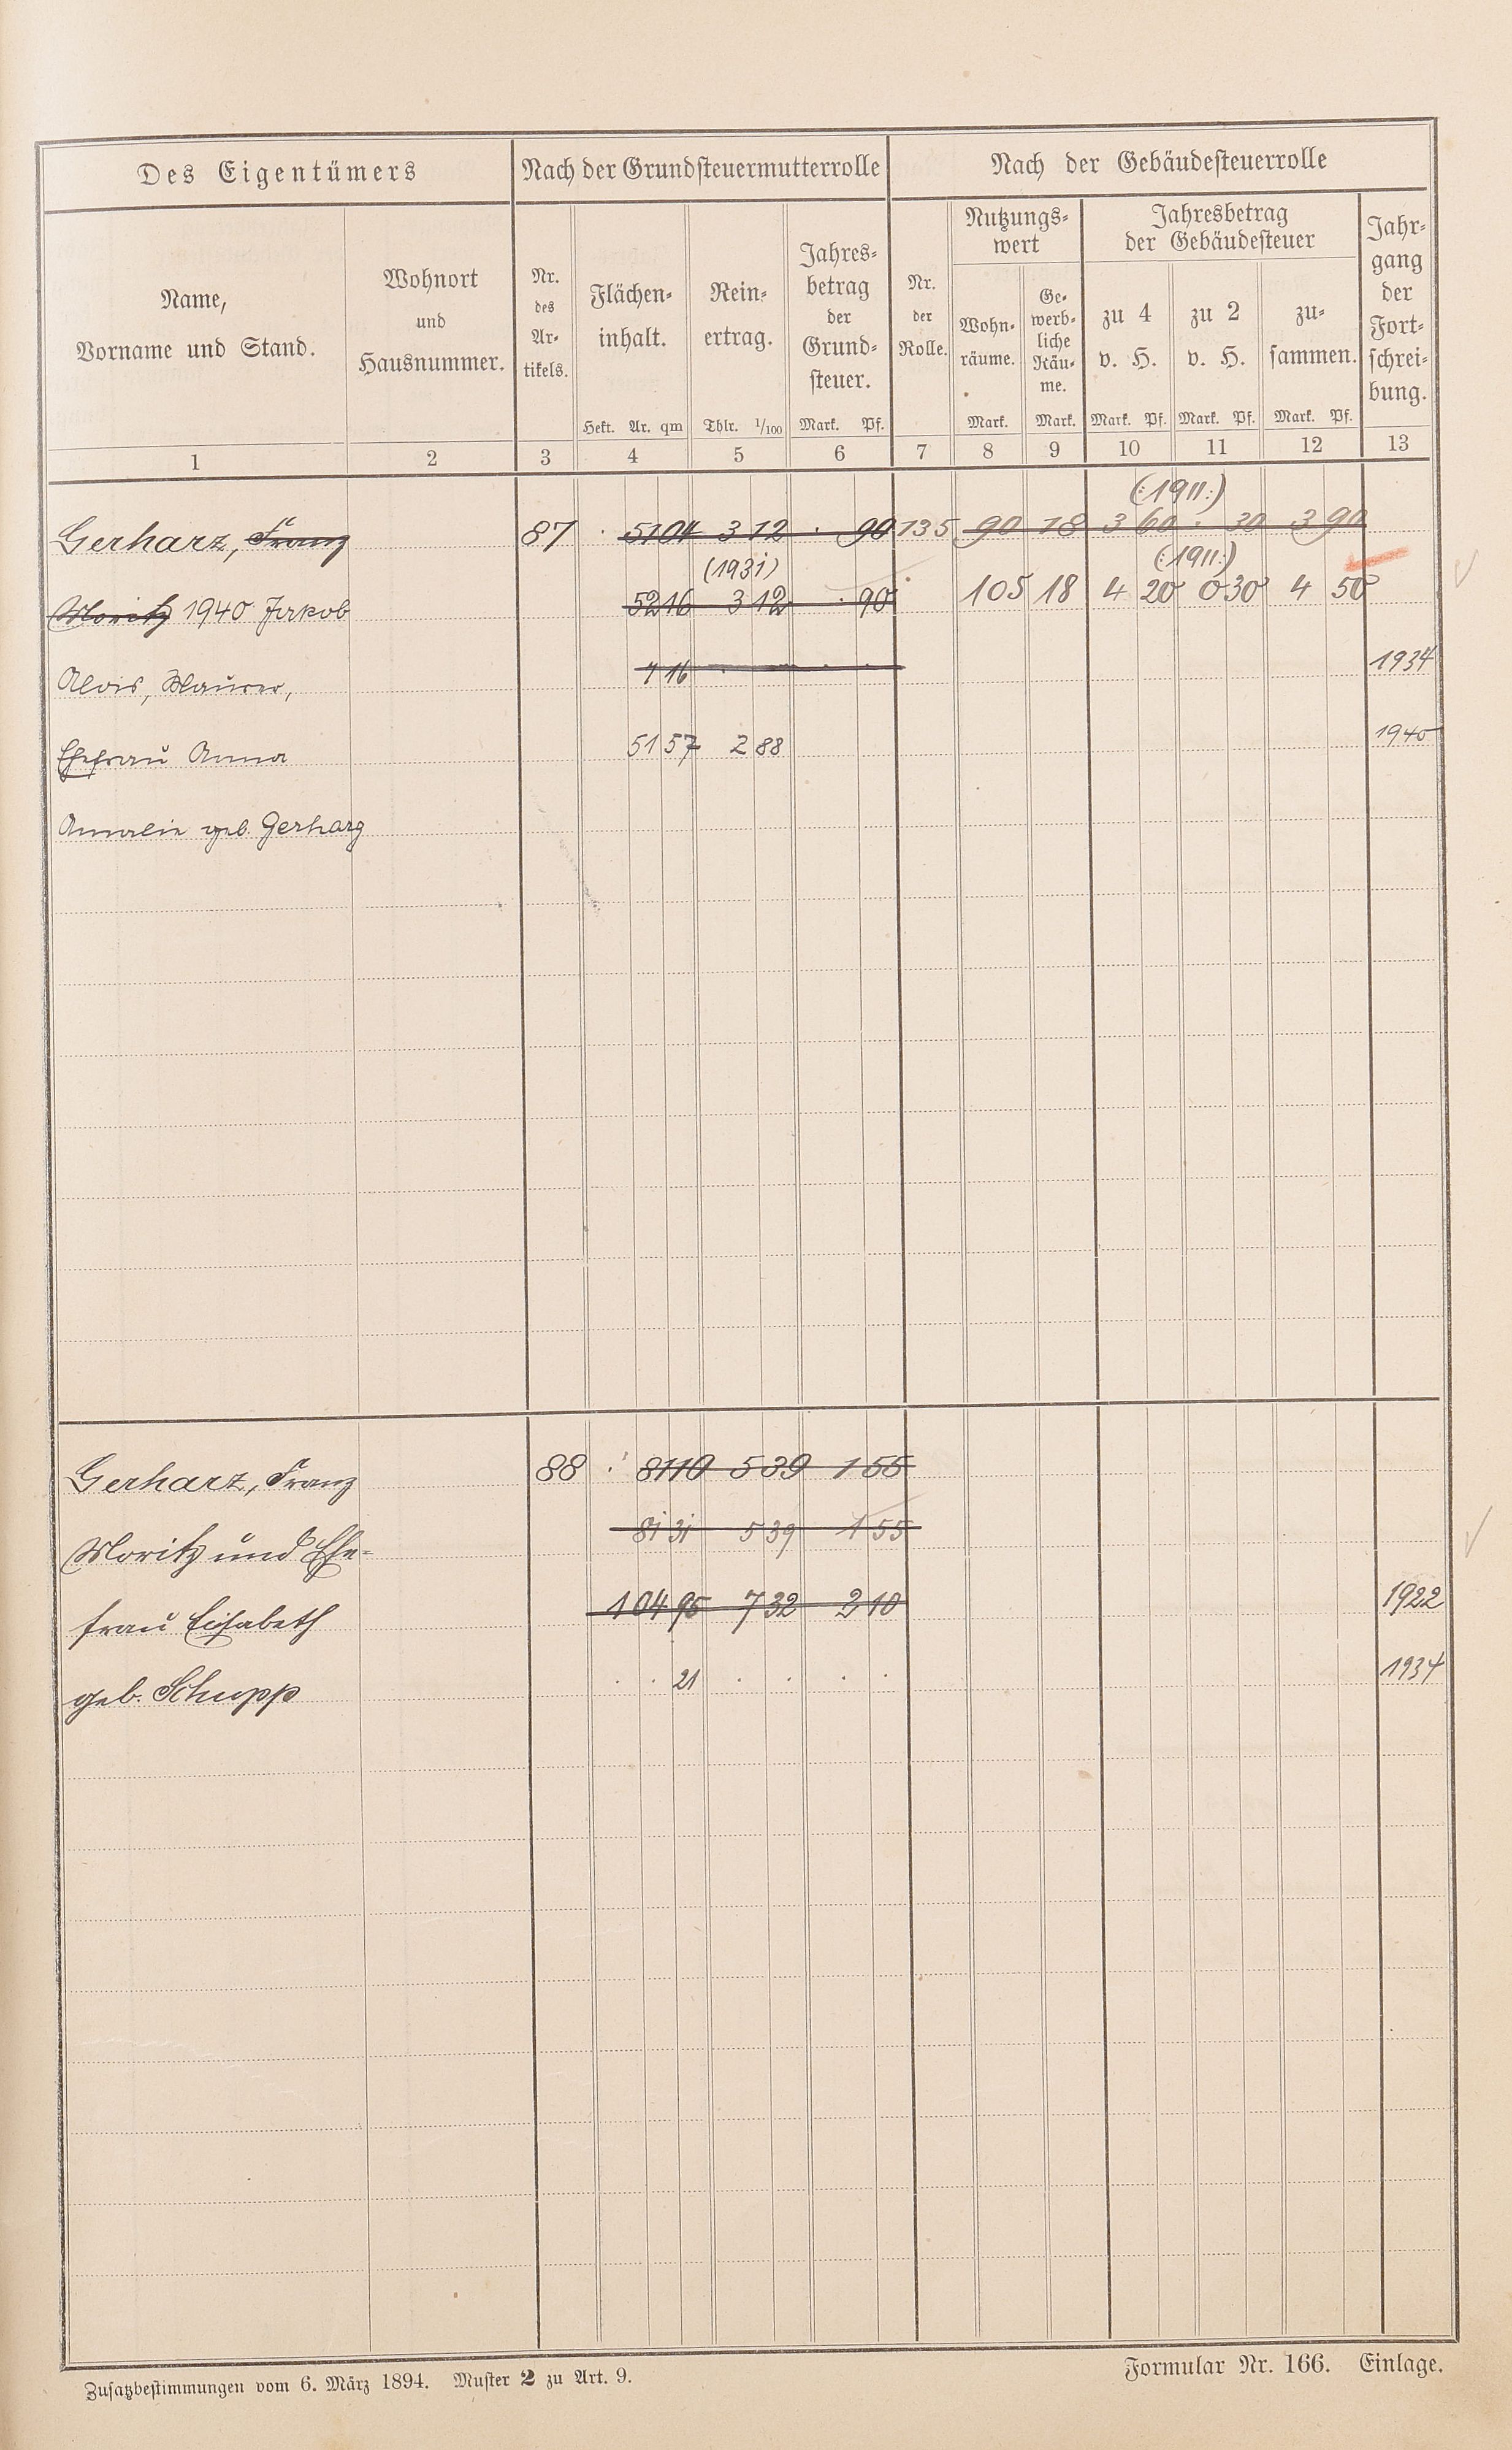 Des Eigentümers
Nach der Grundsteuermutterrolle
Nach der Gebäudesteuerrolle
Name,
Vorname und Stand.
Wohnort
und
Hausnummer.
Nr.
des
Ar-
tikels.
Flächen-
inhalt.
Hekt. Ar. qm
Rein-
ertrag.
Thlr. 1/100
Jahres-
betrag
der
Grund-
steuer.
Mark. Pf.
Nr.
der
Rolle.
Nutzungs-
wert
Wohn-
räume.
Mark.
Ge-
werb-
liche
Räu-
me.
Mark.
Jahresbetrag
der Gebäudesteuer
zu 4
v. H.
Mark. Pf.
zu 2
v. H.
Mark. Pf.
zu-
sammen.
Mark. Pf.
Jahr-
gang
der
Fort-
schrei-
bung.
1 2 3 4 5 6 7 8 9 10 11 12 13
(:1911:)
Gerharz, Franz 87 · 51 04 3 12 · 90 135 90 18 3 60 · 30 3 90
(1931) (:1911:)
Moritz 1940 Jakob 52 16 3 12 · 90 105 18 4 20 0 30 4 50
Alois, Maurer, 16 1934
Ehefrau Anna 51 57 2 88 1940
Amalie geb. Gerharz
Gerharz, Franz 88 · 81 10 5 39 1 55
Moritz und Ehe- 81 31 5 39 1 55
frau Elisabeth 1 04 95 7 32 2 10 1922
geb. Schupp · · 21 · · · · 1934
Zusatzbestimmungen vom 6. März 1894. Muster 2 zu Art. 9.
Formular Nr. 166. Einlage.